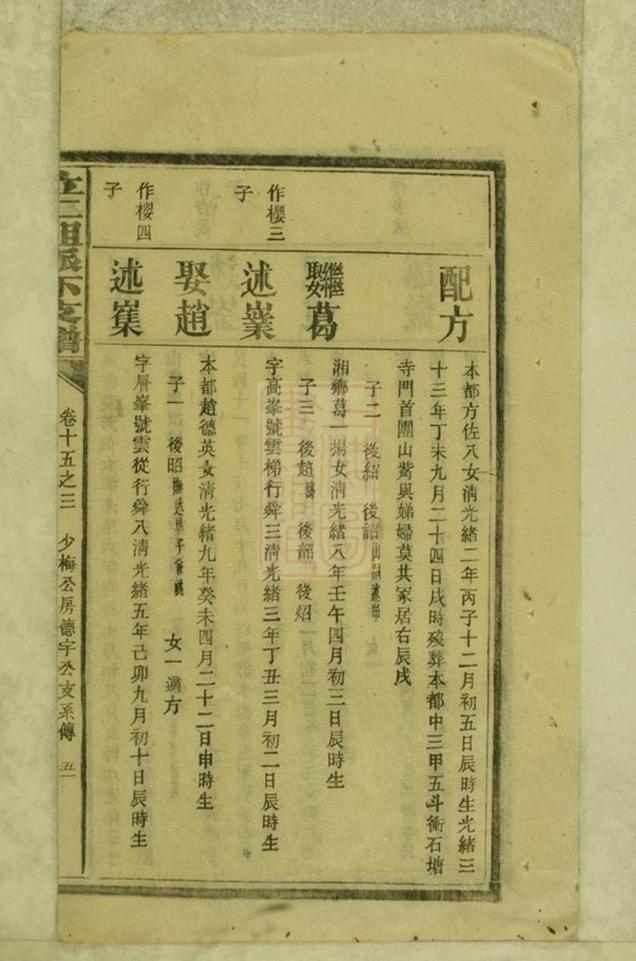 配方
本都方佐八女淸光緒二年丙子十二月初五日辰時生光緒三
十三年丁未九月二十四日戌時歿葬本都中三甲五斗衝石塘
寺門首團山嘴與娣婦莫共冢居右辰戌
子二 後紹 後詔
繼娶葛
湘鄉葛一揚女淸光緒八年壬午四月初三日辰時生
子三 後趙 後韶 後炤
作櫻三
子
述嶪
字高峯號雲梯行舜三淸光緒三年丁丑三月初二日辰時生
娶趙
本都趙德英女淸光緒九年癸未四月二十二日申時生
子一 後昭 女一適方
作櫻四
子
述嶪
字層峯號雲從行舜八淸光緒五年己卯九月初十日辰時生
立二祖派下支譜
卷十五之三 少梅公房德宇公支系傳 五一